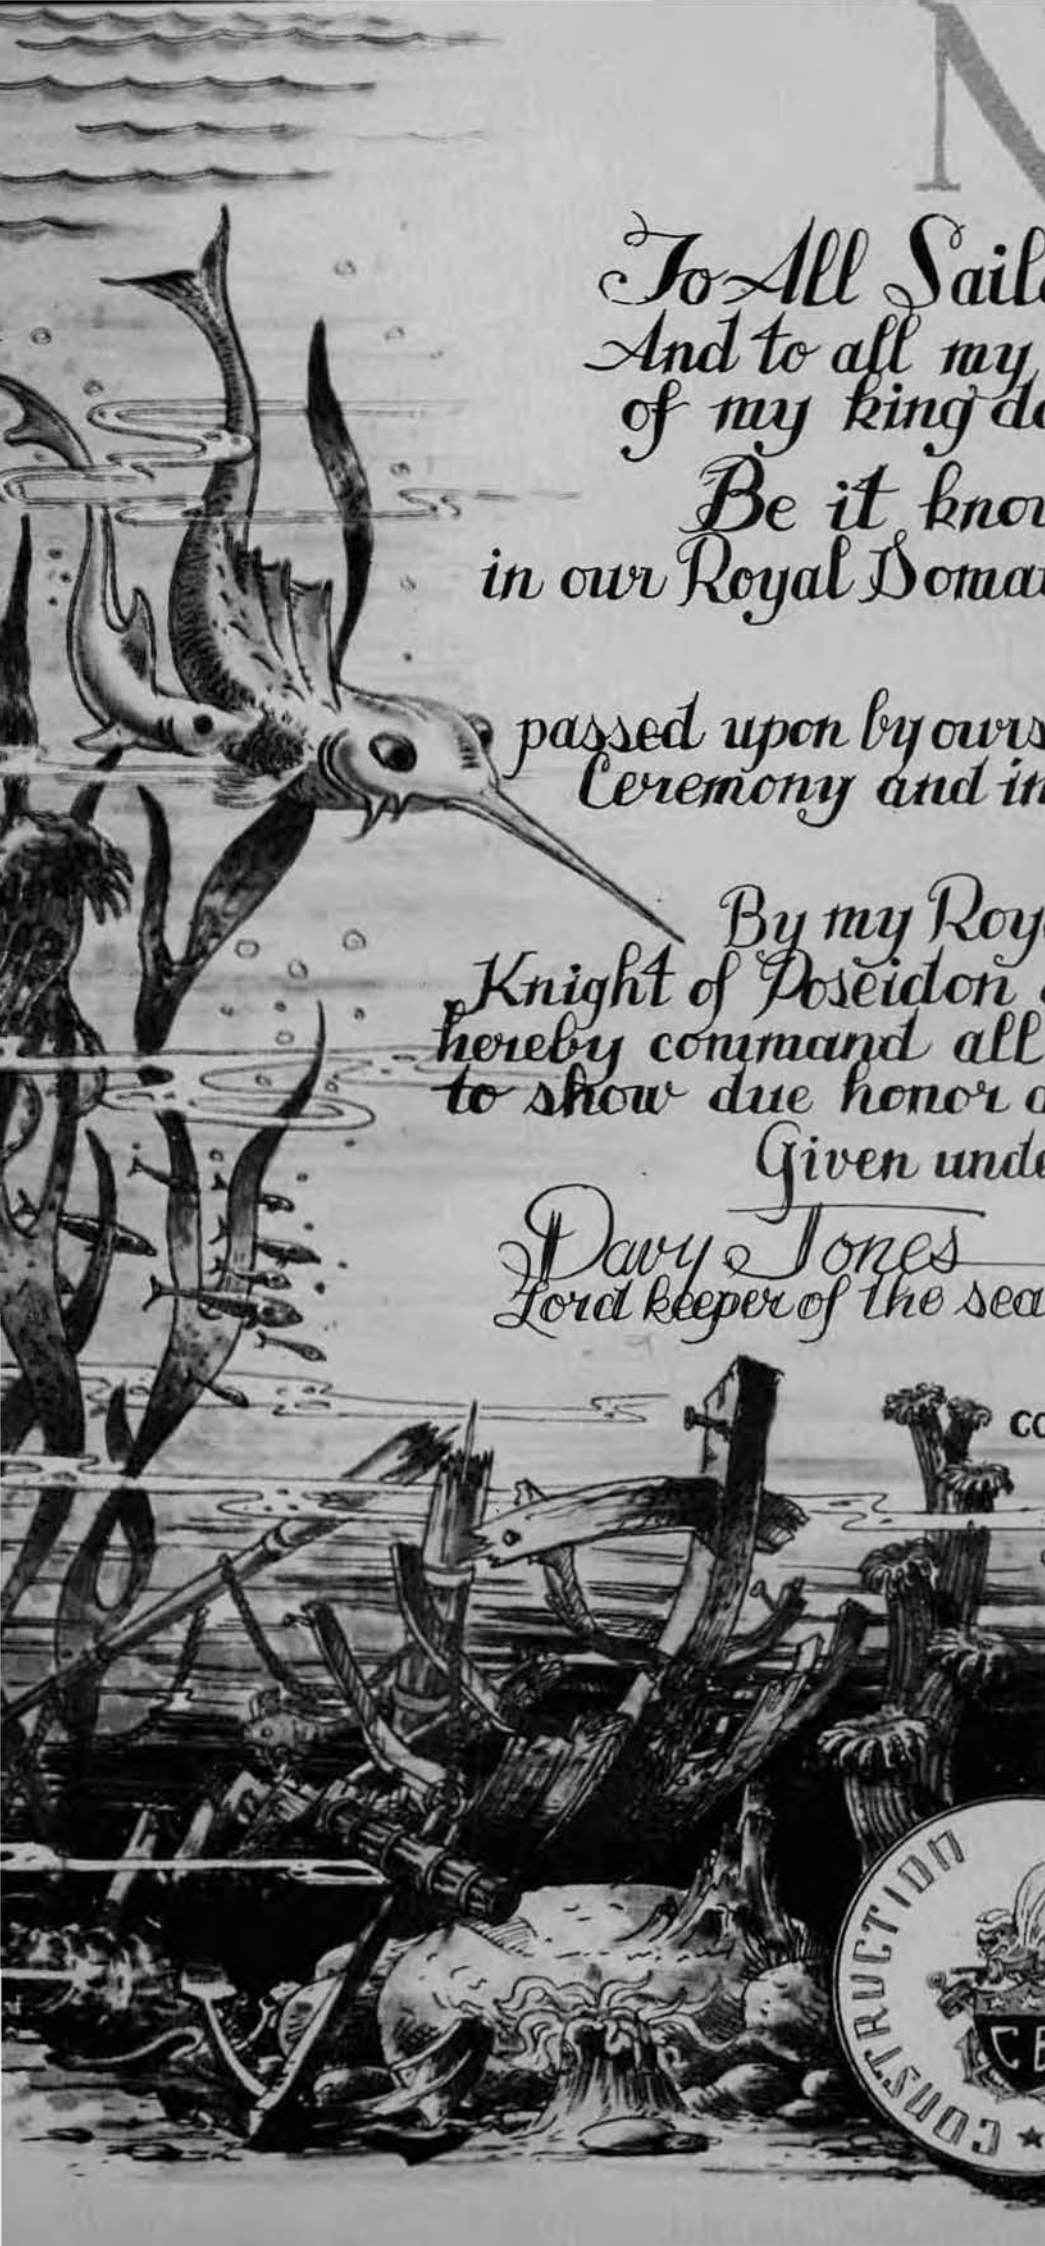 N
To All Sail
And to all my
of my kingdo
Be it know
in our Royal Domai
passed upon by ours
Ceremony and in
By my Roy
Knight of Poseidon
hereby command all
to show due honor a
Given unde
Davy Jones
Lord keeper of the sea
CO
CONSTRUCTION
CB